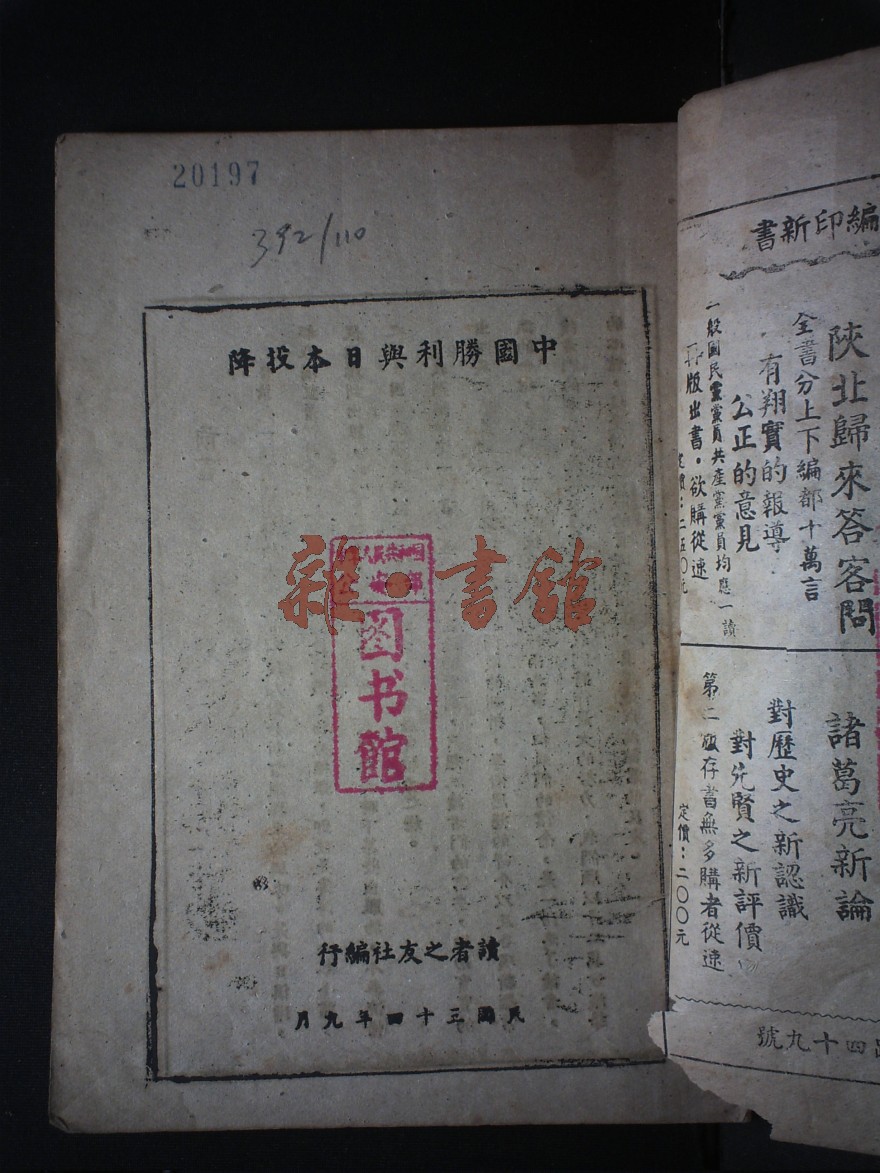 20197
392/110
中國勝利與日本投降
雜·書館
图书馆
讀者之友社編行
民國三十四年九月
編印新書
陝北歸來答客問
全書分上下編都十萬言
有翔實的報導
公正的意見
一般國民黨黨員共產黨黨員均應一讀
再版出書。欲購從速
定價：二五〇元
諸葛亮新論
對歷史之新認識
對先賢之新評價
第二版存書無多購者從速
定價：二〇〇元
四十九號